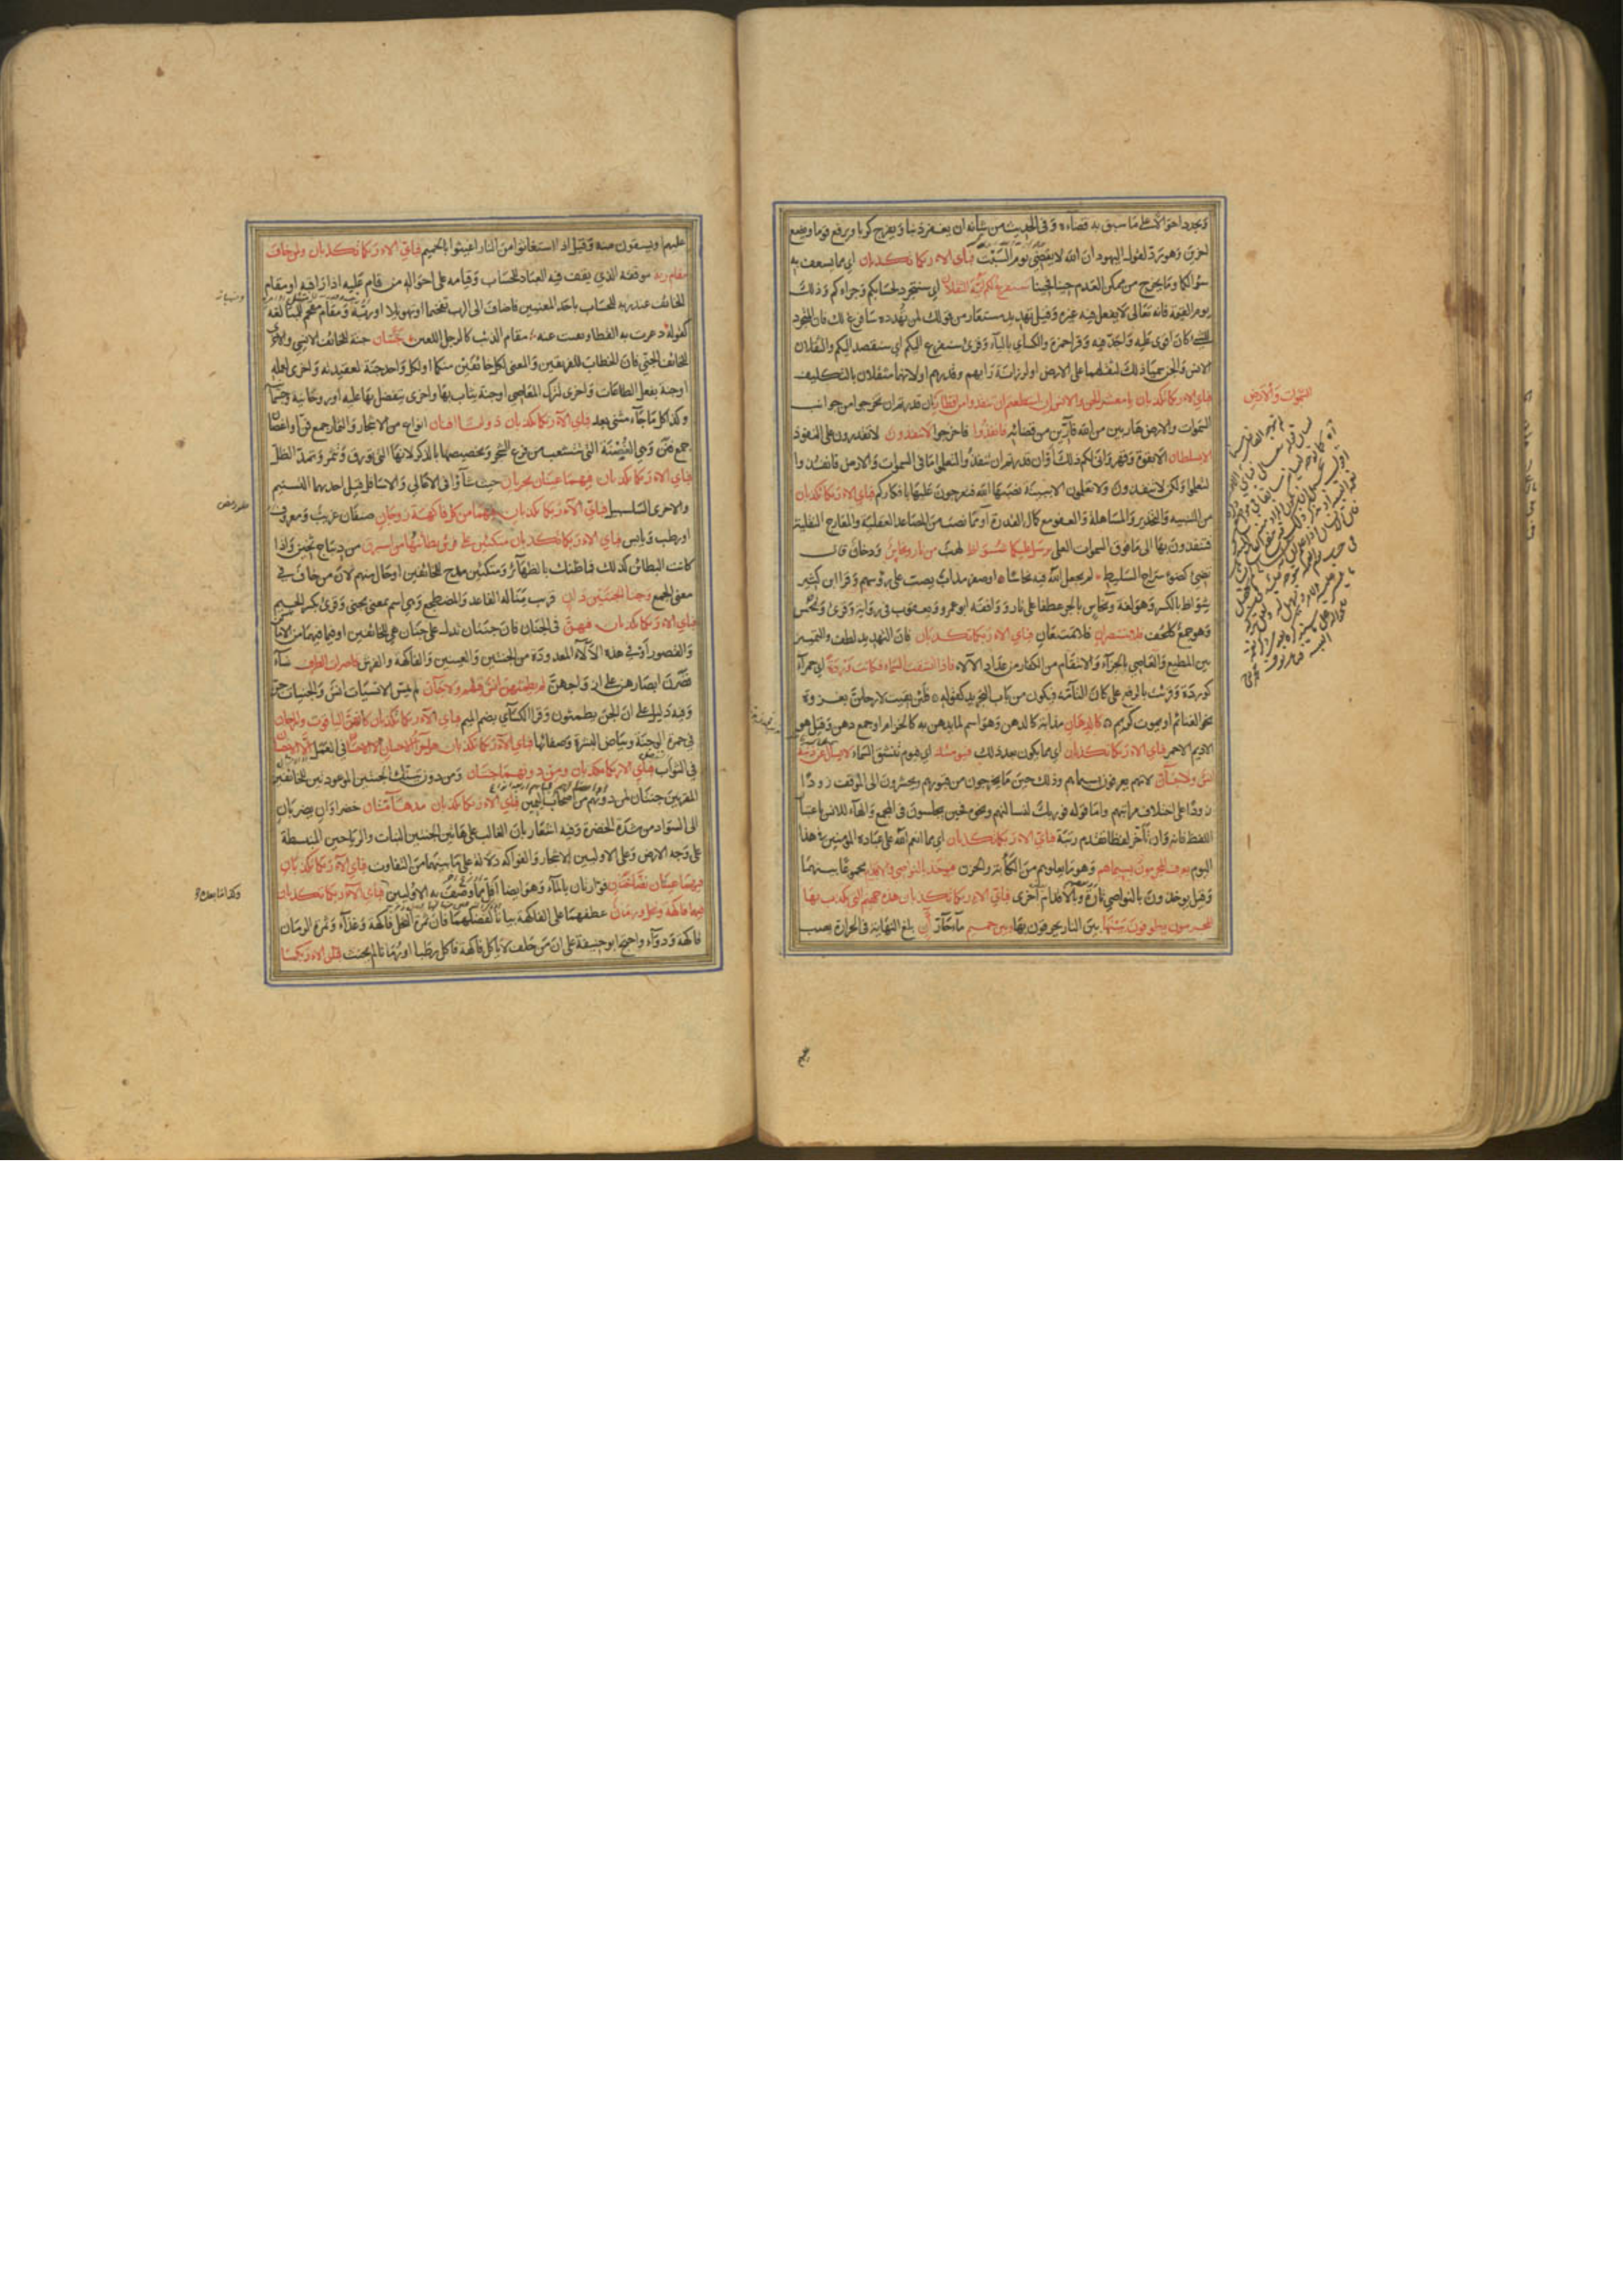 ويجدد احوالا على ما سبق به قضاؤه وفي الحديث من شأنه ان يغفر ذنبا ويفرج كربا ويرفع قوما ويضع
اخرين وهو رد لقول اليهود ان الله لا يقضي يوم السبت فباي الاء ربكما تكذبان اي مما يسعف به
سؤالكما وما يخرج من ممكن العدم حينا فحينا سنفرغ لكم ايه الثقلان اي سنتجرد لحسابكم وجزائكم وذلك
يوم القيمة فانه تعالى لا يفعل فيه غيره وقيل تهديد مستعار من قولك لمن تهدده سافرغ لك فان المتجرد
للشيء كان اقوى عليه واجد فيه وقرا حمزة والكسائي بالياء وقرئ سنفرغ اليكم اي سنقصد اليكم والثقلان
الانس والجن سميا بذلك لثقلهما على الارض او لرزانة رايهم وقدرهم او لانهما مثقلان بالتكليف
فباي الاء ربكما تكذبان يا معشر الجن والانس ان استطعتم ان تنفذوا من اقطار ان قدرتم ان تخرجوا من جوانب
السموات والارض هاربين من الله فارين من قضائه فانفذوا فاخرجوا لا تنفذون لا تقدرون على النفوذ
الا بسلطان الا بقوة وقهر وانى لكم ذلك او ان قدرتم ان تنفذوا لتعلموا ما في السموات والارض فانفذوا
لتعلموا ولكن لا تنفذون ولا تعلمون الا ببينة نصبها الله فتعرجون عليها بافكاركم فباي الاء ربكما تكذبان
من التنبيه والتحذير والمساهلة والعفو مع كمال القدرة او مما نصب من المصاعد العقلية والمعارج النقلية
فتنفذون بها الى ما فوق السموات العلى يرسل عليكما شواظ لهب من نار ونحاس ودخان قال
تضيء كضوء سراج السليط لم يجعل الله فيه نحاسا او صفر مذاب يصب على رؤسهم وقرا ابن كثير
شواظ بالكسر وهو لغة ونحاس بالجر عطفا على نار ووافقه ابو عمرو ويعقوب في رواية وقرئ ونحس
وهو جمع كلحف فلا تنتصران فلا تمتنعان فباي الاء ربكما تكذبان فان التهديد لطف والتمييز
بين المطيع والعاصي بالجزاء والانتقام من الكفار من عداد الالاء فاذا انشقت السماء فكانت وردة اي حمراء
كوردة وقرئت بالرفع على كان التامة فيكون من باب التجريد كقوله فلئن بقيت لارحلن بغزوة
نحو الغنائم او يموت كريم كالدهان مذابة كالدهن وهو اسم لما يدهن به كالحزام او جمع دهن وقيل هو
الاديم الاحمر فباي الاء ربكما تكذبان اي مما يكون بعد ذلك فيومئذ اي فيوم تنشق السماء لا يسال عن ذنبه
انس ولا جان لانهم يعرفون بسيماهم وذلك حين ما يخرجون من قبورهم ويحشرون الى الموقف ذودا
ذودا على اختلاف مراتبهم واما قوله فوربك لنسالنهم ونحوه فحين يحاسبون في المجمع والهاء للانس باعتبار
اللفظ فانه وان تاخر لفظا تقدم رتبة فباي الاء ربكما تكذبان اي مما انعم الله على عباده المؤمنين في هذا
اليوم يعرف المجرمون بسيماهم وهو ما يعلوهم من الكآبة والحزن فيؤخذ بالنواصي والاقدام مجموعا بينهما
وقيل يؤخذون بالنواصي تارة وبالاقدام اخرى فباي الاء ربكما تكذبان هذه جهنم التي يكذب بها
المجرمون يطوفون بينها بين النار يحرقون بها وبين حميم ماء حار آن بلغ النهاية في الحرارة يصب
السموات والارض
عليهم او يسقون منه وقيل اذا استغاثوا من النار اغيثوا بالحميم فباي الاء ربكما تكذبان ولمن خاف
مقام ربه موقفه الذي يقف فيه العباد للحساب وقيامه على احواله من قام عليه اذا راقبه او مقام
الخائف عند ربه للحساب باحد المعنيين فاضاف الى الرب تفخيما وتهويلا او ربه ومقام مقحم للمبالغة
كقوله ذعرت به القطا ونفيت عنه مقام الذئب كالرجل اللعين جنتان جنة للخائف الانسي والاخرى
للخائف الجني فان الخطاب للفريقين والمعنى لكل خائفين منكما او لكل واحد جنة لعقيدته واخرى لعمله
او جنة بفعل الطاعات واخرى لترك المعاصي او جنة يثاب بها واخرى يتفضل بها عليه او روحانية وجسمانية
وكذا كل ما جاء مثنى بعد فباي الاء ربكما تكذبان ذواتا افنان انواع من الاشجار والثمار جمع فن او اغصان
جمع فنن وهي الغصنة التي تتشعب من فرع الشجر وتخصيصها بالذكر لانها التي تورق وتثمر وتمد الظل
فباي الاء ربكما تكذبان فيهما عينان تجريان حيث شاؤا في الاعالي والاسافل قيل احديهما التسنيم
والاخرى السلسبيل فباي الاء ربكما تكذبان فيهما من كل فاكهة زوجان صنفان غريب ومعروف
او رطب ويابس فباي الاء ربكما تكذبان متكئين على فرش بطائنها من استبرق من ديباج ثخين واذا
كانت البطائن كذلك فما ظنك بالظهائر ومتكئين مدح للخائفين او حال منهم لان من خاف في
معنى الجمع وجنا الجنتين دان قريب يناله القاعد والمضطجع وجنى اسم بمعنى مجني وقرئ بكسر الجيم
فباي الاء ربكما تكذبان فيهن في الجنان فان جنتان تدل على جنان هي للخائفين او فيما فيهما من الاماكن
والقصور او في هذه الآلاء المعدودة من الجنتين والعينين والفاكهة والفرش قاصرات الطرف نساء
قصرن ابصارهن على ازواجهن لم يطمثهن انس قبلهم ولا جان لم يمس الانسيات انس والجنيات جن
وفيه دليل على ان الجن يطمثون وقرا الكسائي بضم الميم فباي الاء ربكما تكذبان كانهن الياقوت والمرجان
في حمرة الوجنة وبياض البشرة وصفائها فباي الاء ربكما تكذبان هل جزاء الاحسان في العمل الا الاحسان
في الثواب فباي الاء ربكما تكذبان ومن دونهما جنتان ومن دون تينك الجنتين الموعودتين للخائفين
المقربين جنتان لمن دونهم من اصحاب اليمين فباي الاء ربكما تكذبان مدهامتان خضراوان يضربان
الى السواد من شدة الخضرة وفيه اشعار بان الغالب على هاتين الجنتين النبات والرياحين المنبسطة
على وجه الارض وعلى الاوليين الاشجار والفواكه دلالة على ما بينهما من التفاوت فباي الاء ربكما تكذبان
فيهما عينان نضاختان فوارتان بالماء وهو ايضا اقل مما وصف به الاوليين فباي الاء ربكما تكذبان
فيهما فاكهة ونخل ورمان عطفهما على الفاكهة بيانا لفضلهما فان ثمرة النخل فاكهة وغذاء وثمرة الرمان
فاكهة ودواء واحتج ابو حنيفة على ان من حلف لا ياكل فاكهة فاكل رطبا او رمانا لم يحنث فباي الاء ربكما